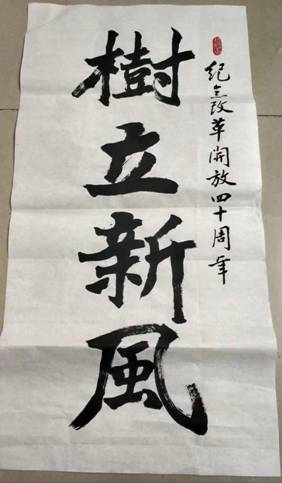 紀念改革開放四十周年
樹立新風